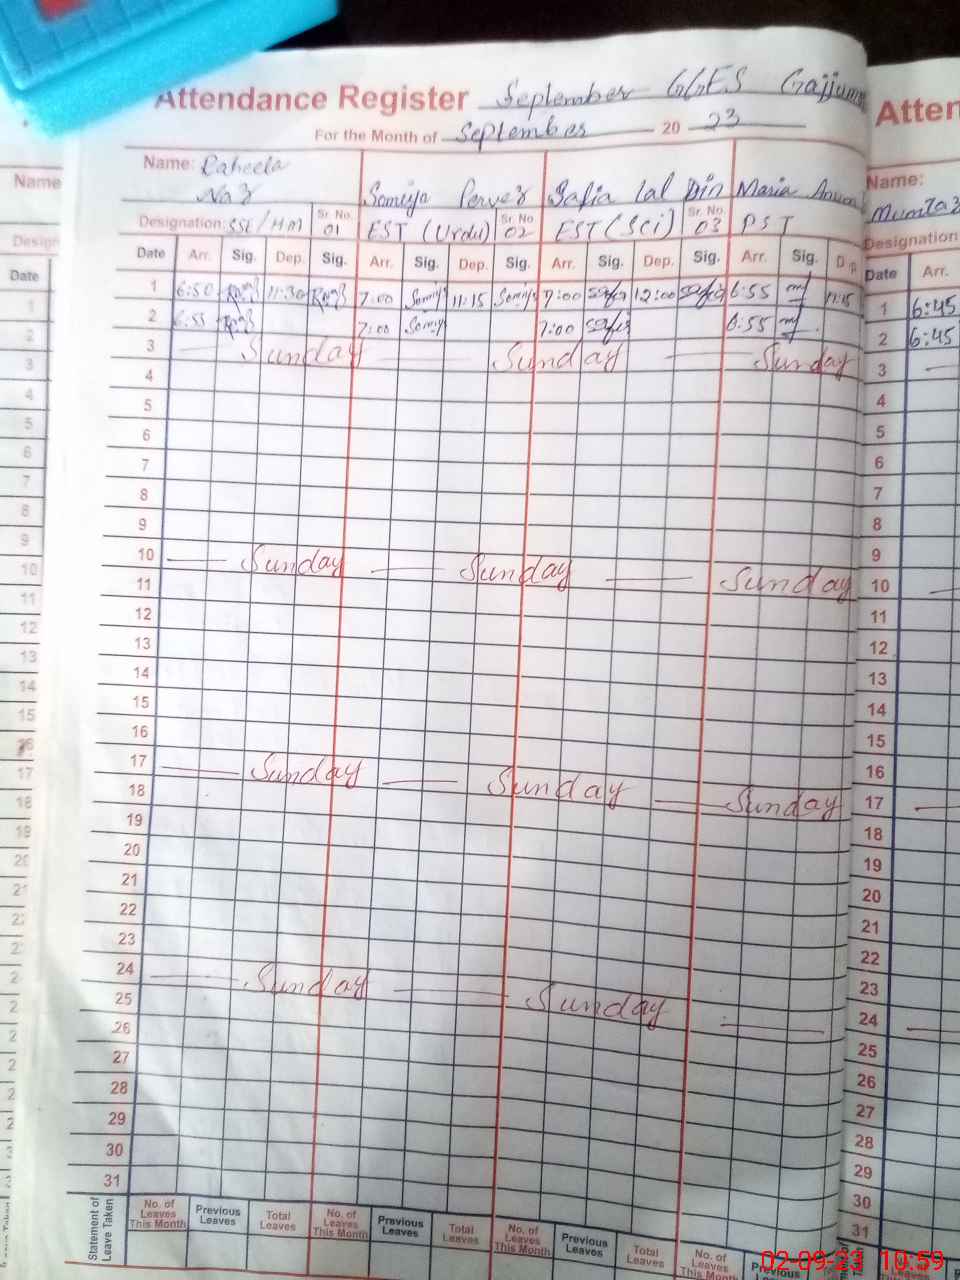 Attendance Register September GGES Gajjum
For the Month of September 2023
Name: Raheela Naz
Somiya Pervez Safia Lal Din Maria
Designation: SSE/HM Sr. No. 01 EST (Urdu) Sr. No 02 EST (Sci) Sr. No. 03 PST
Date Arr. Sig. Dep. Sig. Arr. Sig. Dep. Sig. Arr. Sig. Dep. Sig. Arr. Sig. D p
1 6:50 Raz 11:30 Raz 7:00 Somiy 11:15 Somiy 7:00 Safia 12:00 Safia 6:55 11:15
2 6:55 Raz 7:00 Somiy 7:00 Safia 6:55
3 Sunday Sunday Sunday
4
5
6
7
8
9
10 Sunday Sunday Sunday
11
12
13
14
15
16
17 Sunday Sunday Sunday
18
19
20
21
22
23
24 Sunday Sunday
25
26
27
28
29
30
31
Statement of Leave Taken
No. of Leaves This Month Previous Leaves Total Leaves No. of Leaves This Month Previous Leaves Total Leaves No. of Leaves This Month Previous Leaves Total Leaves No. of Leaves This Month
Atten
Name:
Mumtaz
Designation
Date Arr.
1 6:45
2 6:45
3
4
5
6
7
8
9
10
11
12
13
14
15
16
17
18
19
20
21
22
23
24
25
26
27
28
29
30
31
Name
Design
Date
1
2
3
4
5
6
7
8
9
10
11
12
13
14
15
16
17
18
19
02-09-23 10:59